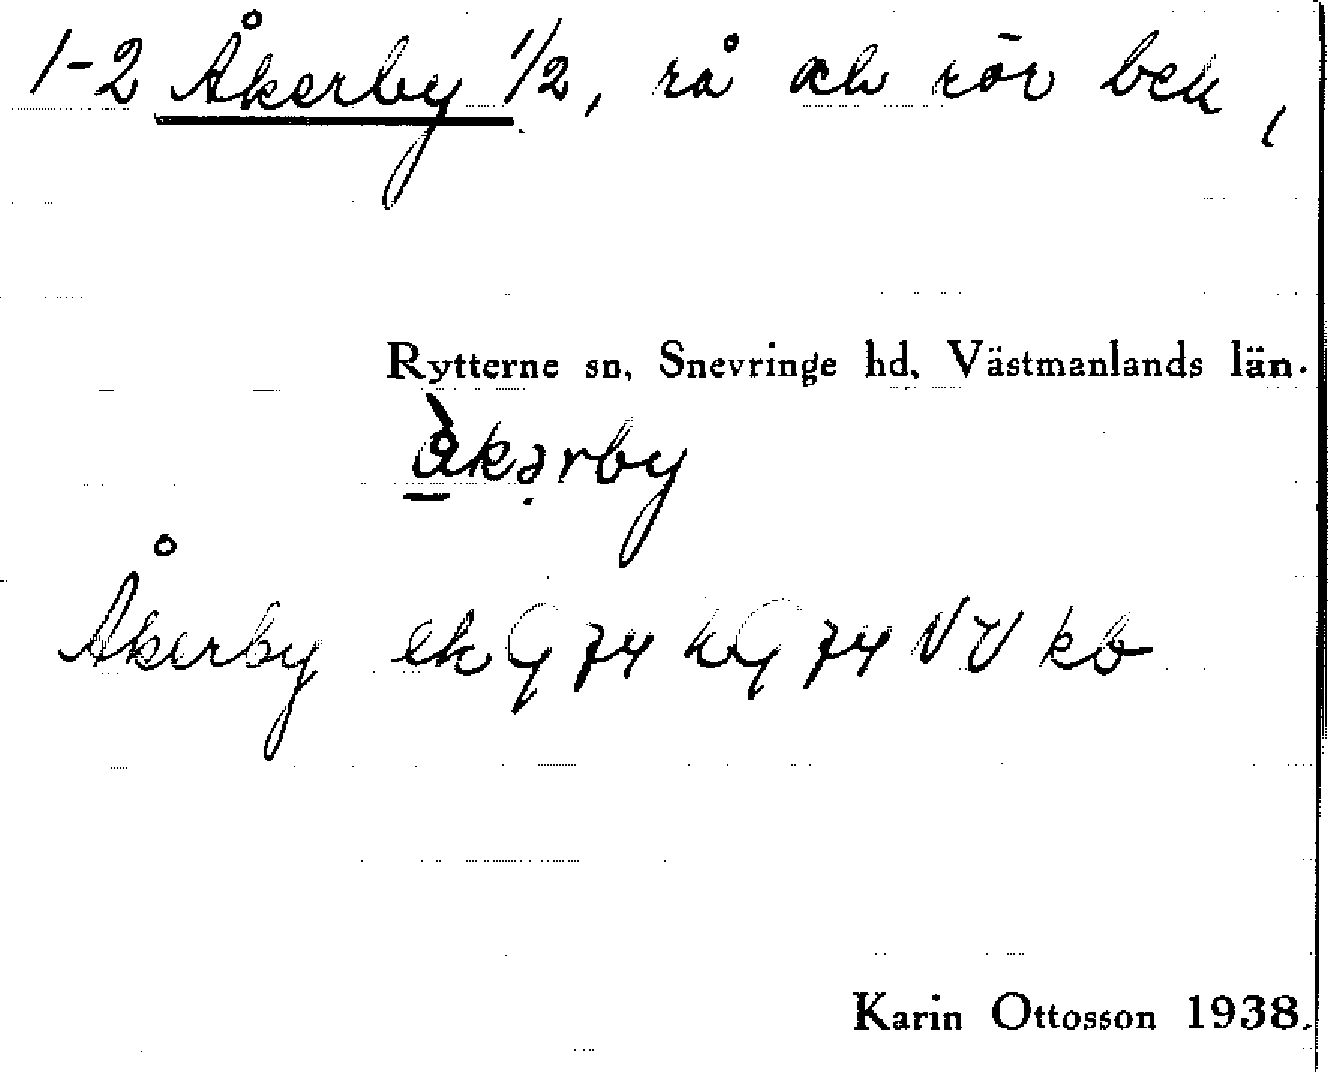 1-2 Åkerby 1/2, rå och rör bek,
Rytterne sn, Snevringe hd, Västmanlands län.
åkərby
Åkerby ek G 74 hG 74 NV kb
Karin Ottosson 1938.